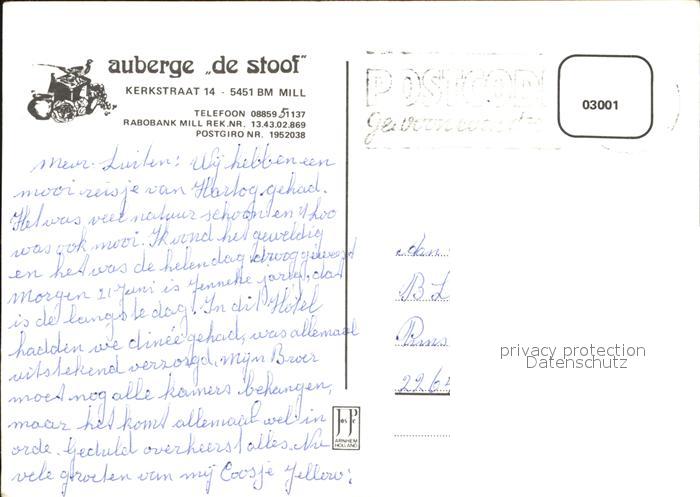 auberge „de stoof”
KERKSTRAAT 14 - 5451 BM MILL
TELEFOON 08859-51137
RABOBANK MILL REK.NR. 13.43.02.869
POSTGIRO NR. 1952038
POSTCODE
03001
Mevr. Luiten: Wij hebben een
mooi reisje van Hartog gehad.
Het was veel natuur schoon en 't hoo
was ook mooi. Ik vond het geweldig
en het was de helen dag droog geweest
Morgen 21 Juni is Jenneke jarig, dat
is de langste dag! In dit Hotel
hadden we dineé gehad, was allemaal
uitstekend verzorgd. Mijn Broer
moet nog alle kamers behangen,
maar het komt allemaal wel in
orde. Geduld overheerst alles. Nu
vele groeten van mij Coosje Jellow:
Aan:
BL
Prins
2264
privacy protection
Datenschutz
Jos Pé
ARNHEM
HOLLAND